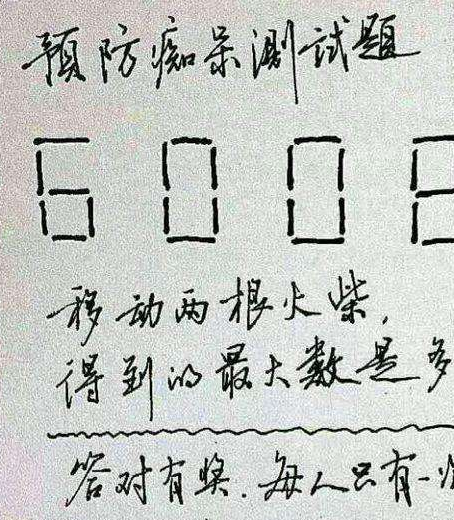 预防痴呆测试题
600
移动两根火柴,
得到的最大数是多
答对有奖.每人只有一